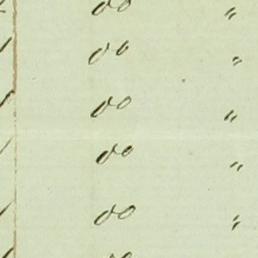 do "
do "
do "
do "
do "
do